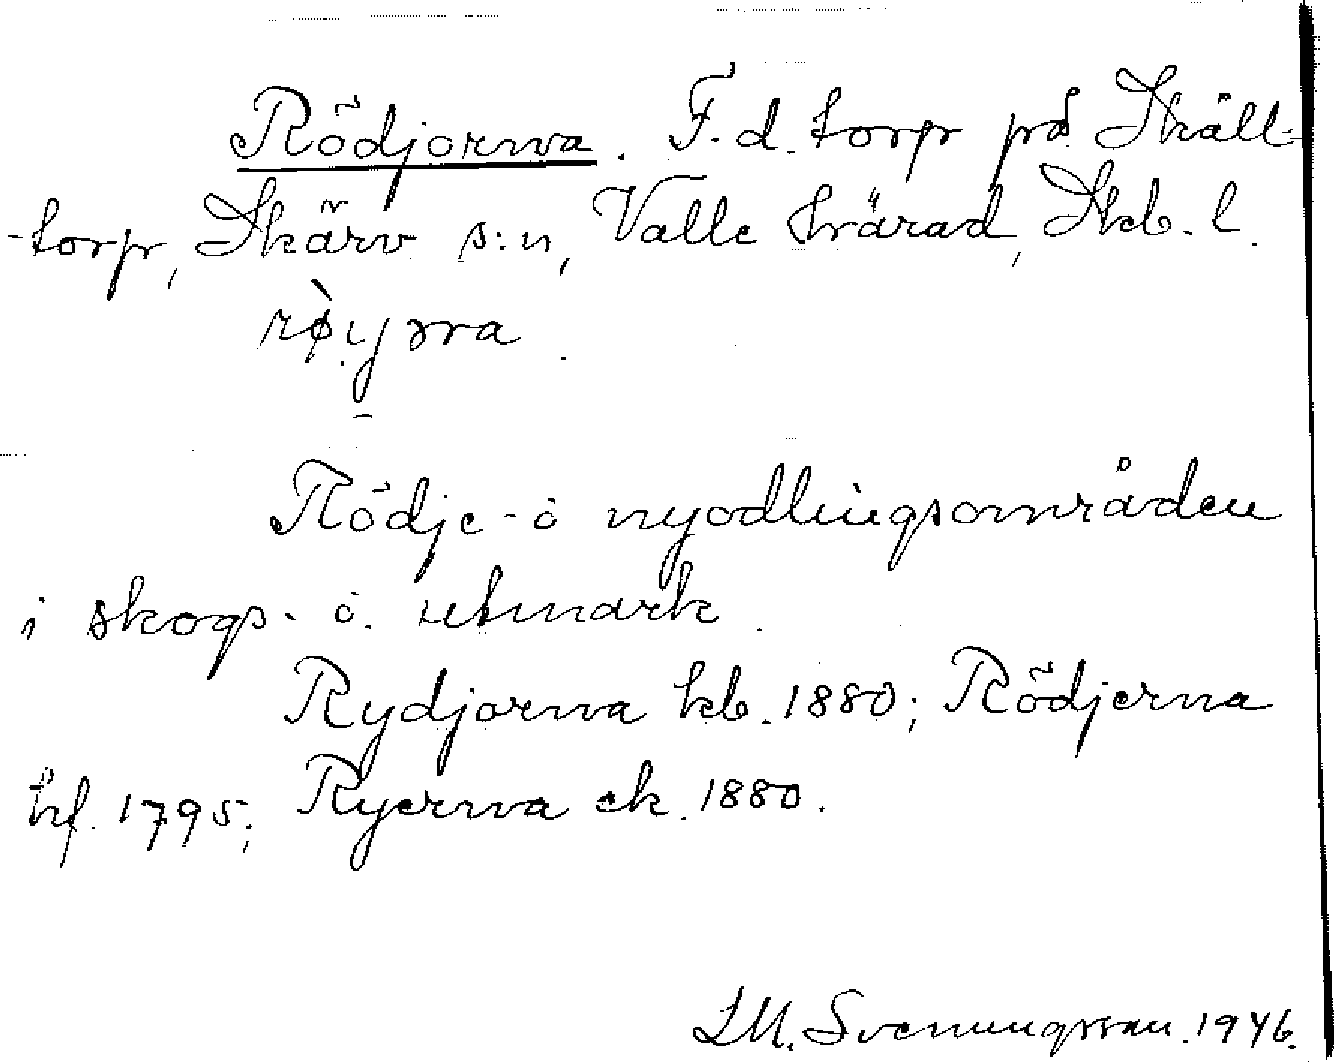 Rödjorna. F.d. torp på Skäll-
-torp, Skärv s:n, Valle härad, Skb. l.
Rödje- o nyodlingsområden
i skogs- o. utmark.
Rydjorna kb. 1880; Rödjerna
hf. 1795; Ryerna ek. 1880.
S. M. Svenungsson. 1946.